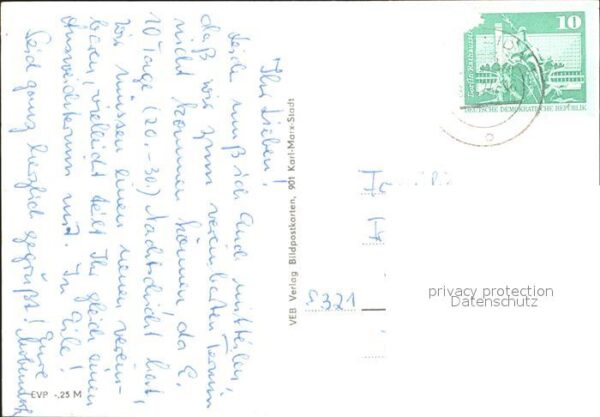 Ihr Lieben!
Leider muß ich Euch mitteilen,
daß wir zum vereinbarten Termin
nicht kommen können, da E.
10 Tage (20.-30.) Nachtschicht hat,
Wir müssen einen neuen verein-
baren, vielleicht teilt Ihr gleich einen
Ausweichtermin mit. In Eile!
Seid ganz herzlich gegrüßt! Eure
EVP -,25 M
VEB Verlag Bildpostkarten, 901 Karl-Marx-Stadt
10
Berlin, Rathausstr.
DEUTSCHE DEMOKRATISCHE REPUBLIK
5321
privacy protection
Datenschutz